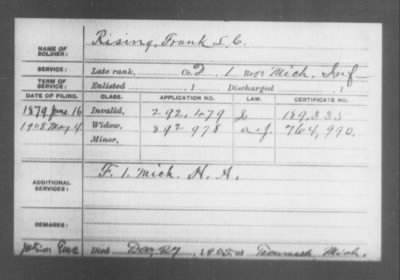 NAME OF SOLDIER: Rising, Frank S. C.
SERVICE: Late rank, Co. 2, 1 Reg't Mich. Inf
TERM OF SERVICE: Enlisted , 1 Discharged , 1
DATE OF FILING. CLASS. APPLICATION NO. LAW. CERTIFICATE NO.
1879 June 16 Invalid, 292,479 189,333
1908 May 4 Widow, 892 978 764,990.
Minor,
ADDITIONAL SERVICES: F. 1. Mich. H. A.
REMARKS:
Died 27, at Tecumseh, Mich.